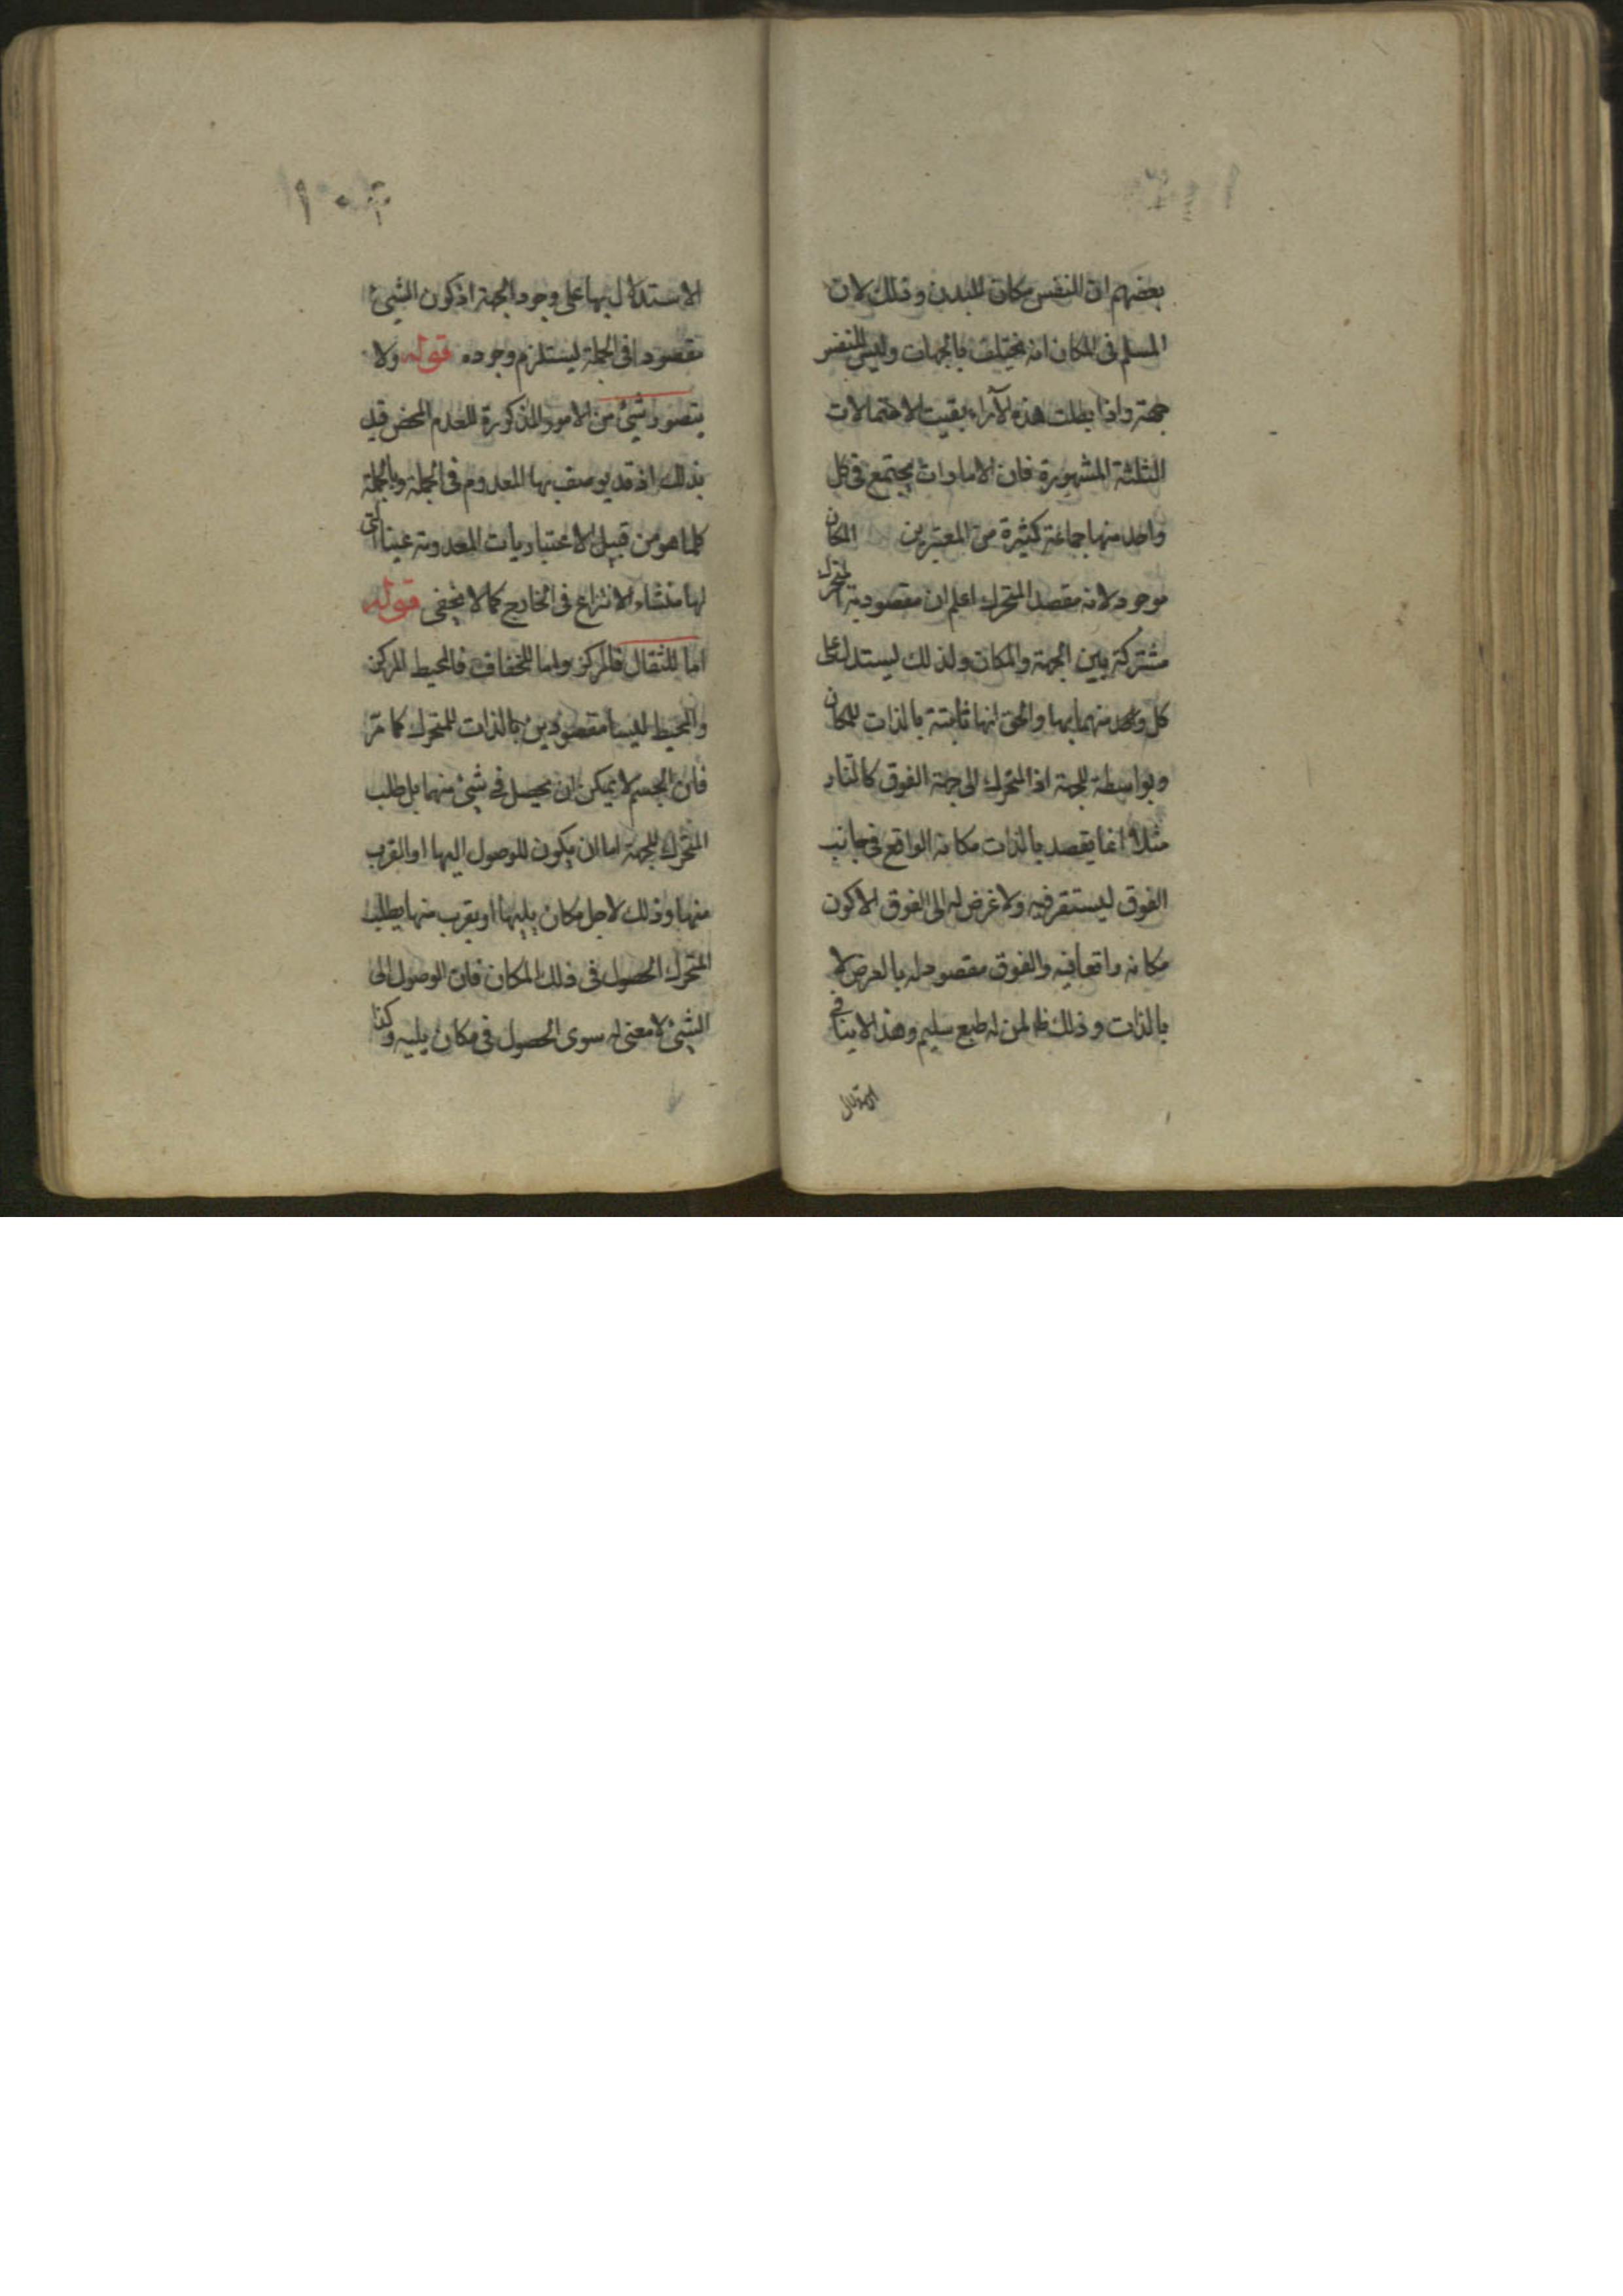 بعضهم ان النفس مكان للبدن وذلك لان
المسلم فى المكان انه يختلف بالجهات وليس للنفس
جهة واذا بطلت هذه الآراء بقيت الاحتمالات
الثلثة المشهورة فان الامارات يجتمع فى كل
واحد منها جماعة كثيرة من المعتبرين المكان
موجود لانه مقصد المتحرك اعلم ان مقصودية المتحرك
مشتركة بين الجهة والمكان ولذلك يستدل على
كل واحد منهما بها والحق انها ثابتة بالذات للمكان
وبواسطة للجهة اذ المتحرك الى جهة الفوق كالنار
مثلا انما يقصد بالذات مكانه الواقع فى جانب
الفوق ليستقر فيه ولا غرض له الى الفوق الا كون
مكانه واقعا فيه والفوق مقصود له بالعرض لا
بالذات وذلك ظ لمن له طبع سليم وهذا لا ينافى
الاستدلال
الاستدلال بها على وجود الجهة اذ كون الشيئ
مقصودا فى الجملة يستلزم وجوده قوله ولا
يتصور شيئ من الامور المذكورة للعدم المحض قيد
بذلك اذ قد يوصف بها المعدوم فى الجملة وبالجملة
كلما هو من قبيل الاعتباريات المعدومة عينا التى
لها منشاء الانتزاع فى الخارج كما لا يخفى قوله
اما للثقال فالمركز واما للخفاف فالمحيط المركز
والمحيط ليسا مقصودين بالذات للمتحرك كما مر
فان الجسم لا يمكن ان يحصل فى شيئ منهما بل طلب
المتحرك للجهة اما ان يكون للوصول اليها او القرب
منها وذلك لاجل مكان يليها او يقرب منها يطلب
المتحرك الحصول فى ذلك المكان فان الوصول الى
الشيئ لا معنى له سوى الحصول فى مكان يليه وكذا